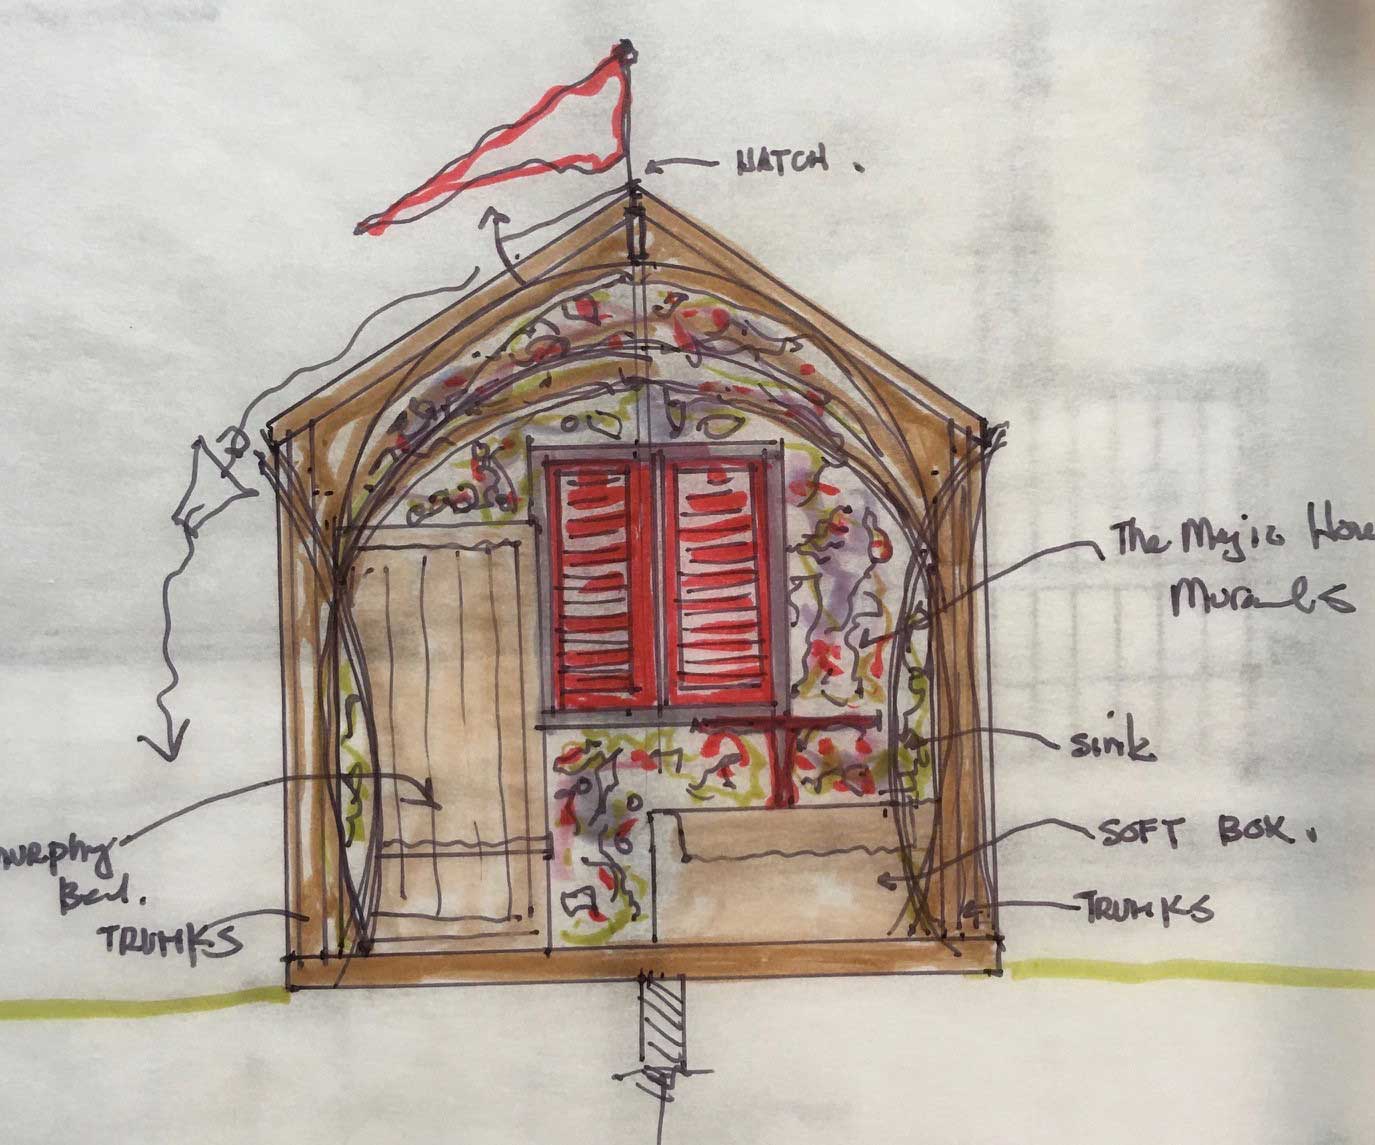 HATCH .
The Majic
Murals
sink
SOFT BOX .
TRUNKS
murphy
Bed.
TRUNKS